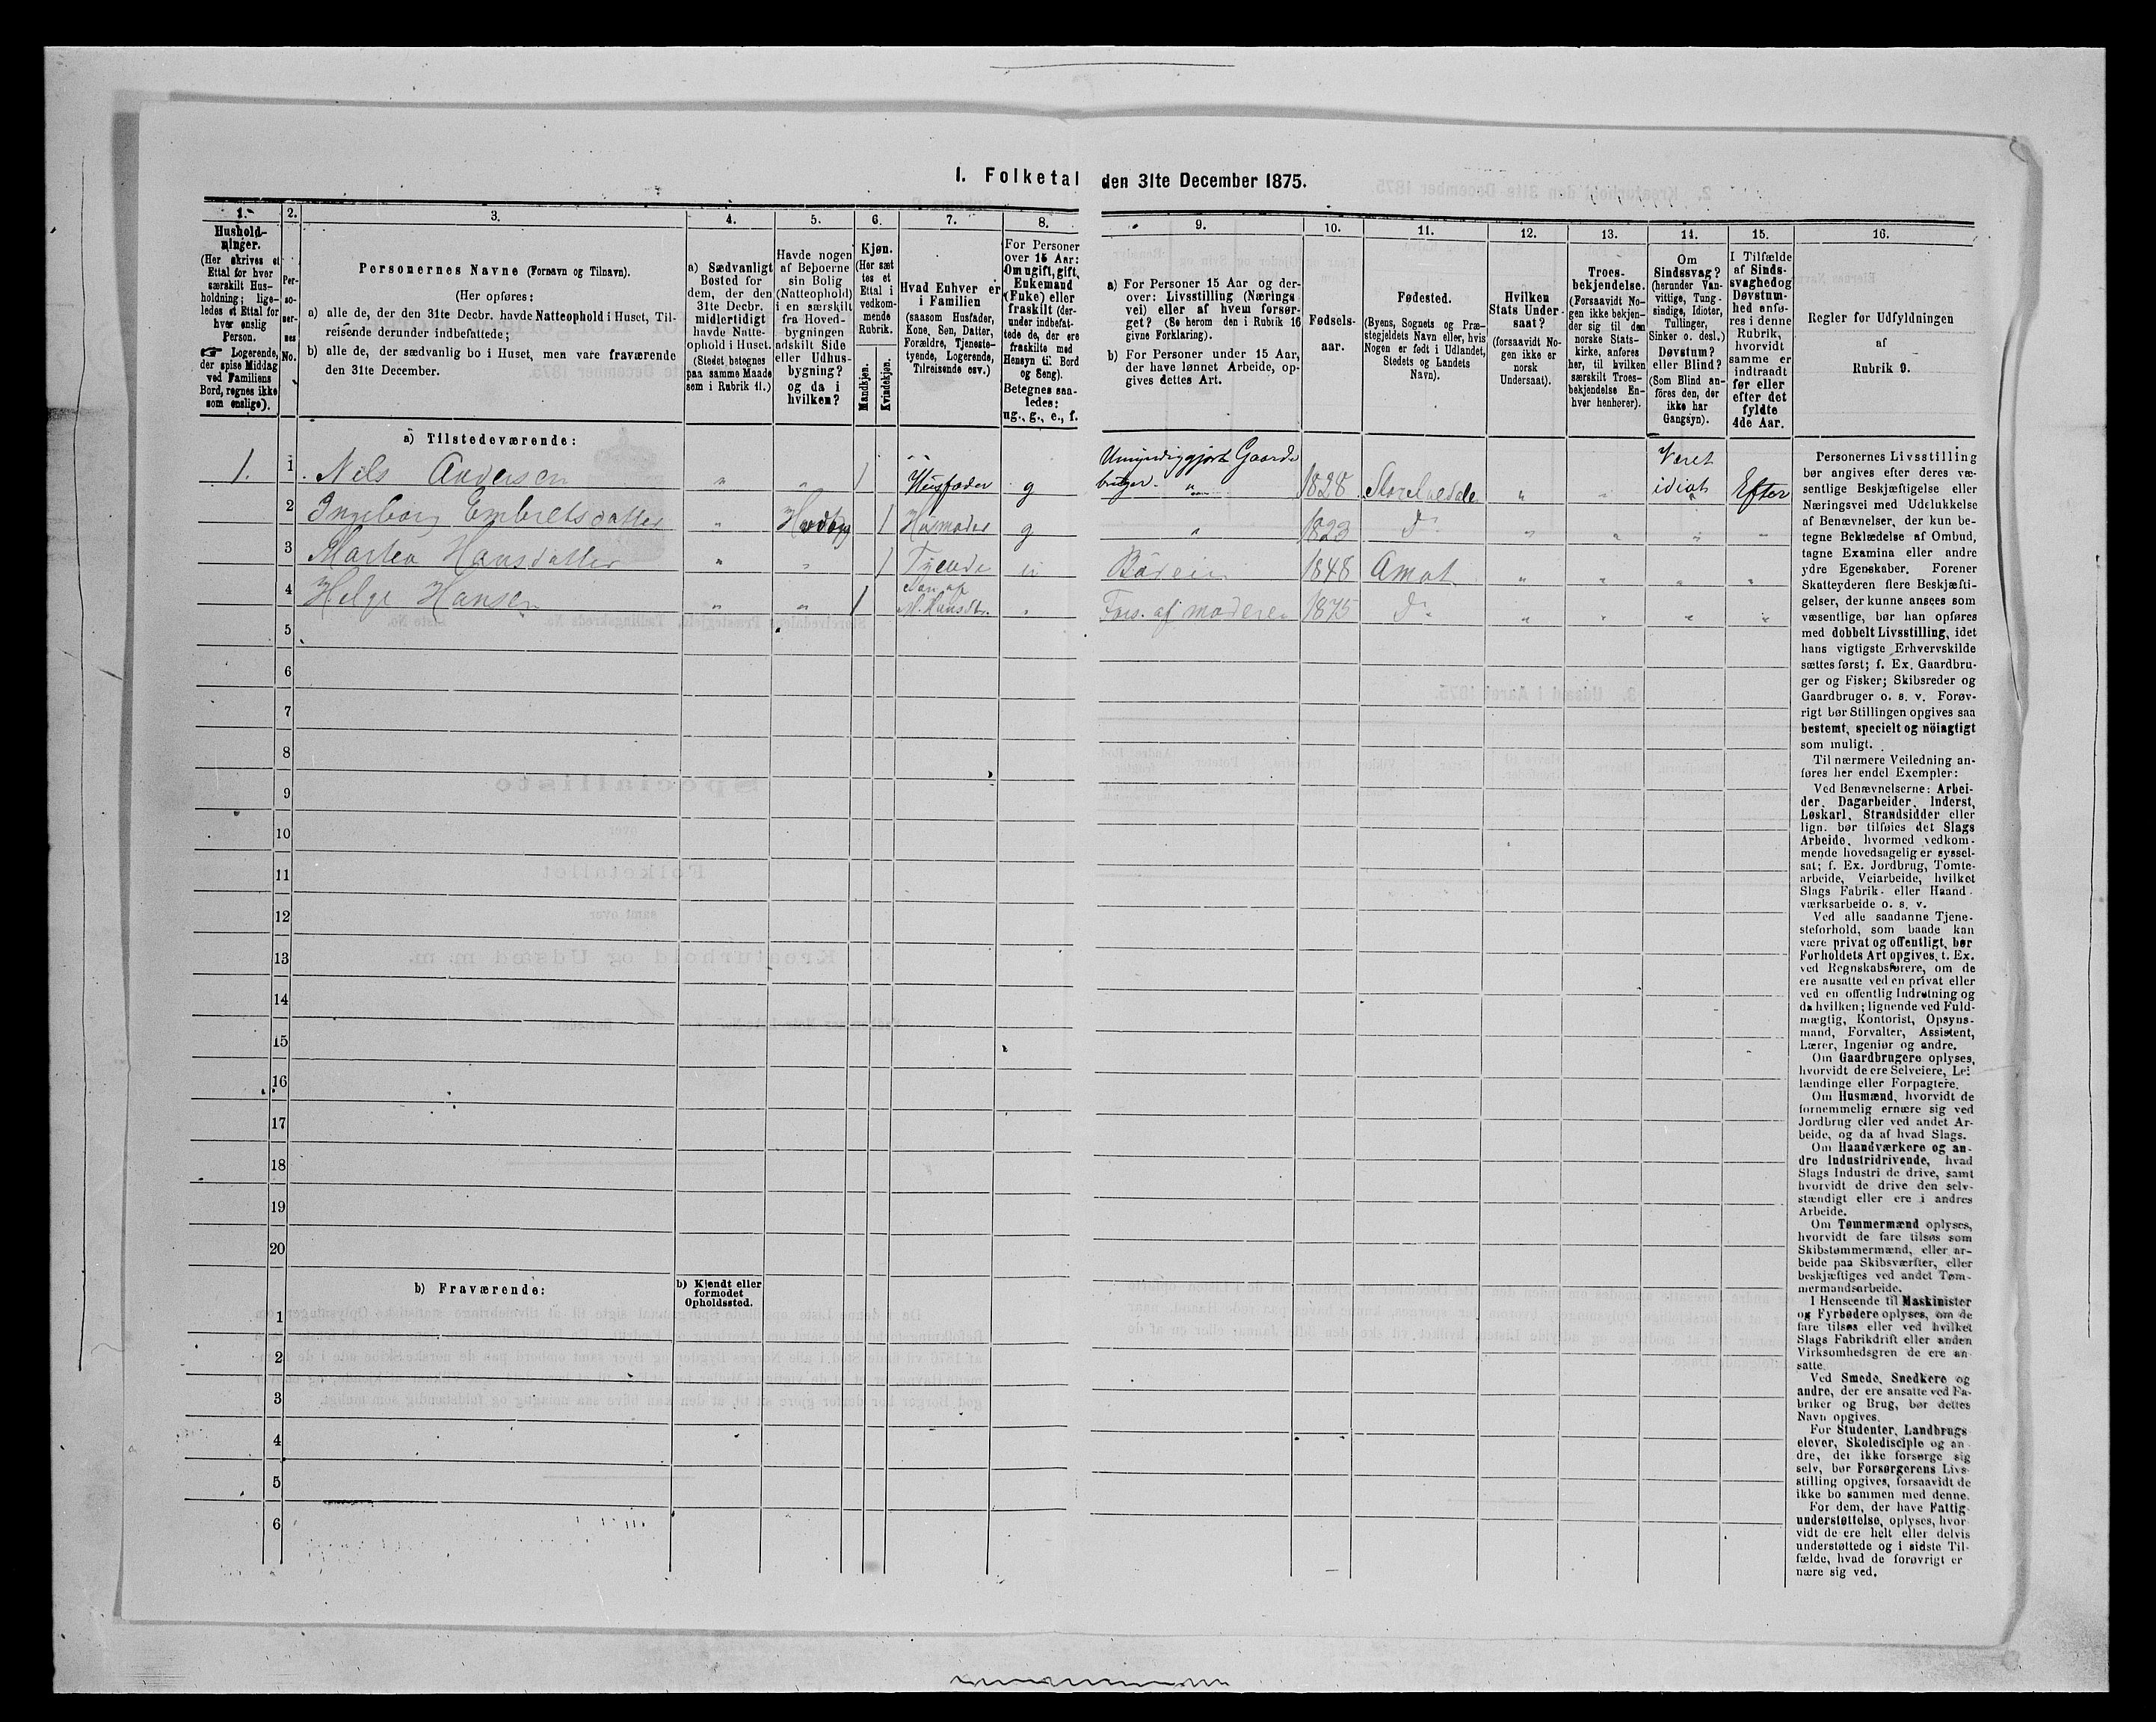 1. Folketal den 31te December 1875.
1. 2. 3. 4. 5. 6. 7. 8. 9. 10. 11. 12. 13. 14. 15. 16.
Hushold-
ninger.
(Her skrives et
Ettal for hver
særskilt Hus-
holdning; lige-
ledes et Ettal for
hver enslig
Person.
☞ Logerende,
der spise Middag
ved Familiens
Bord, regnes ikke
som enslige).
Per-
so-
ner-
nes
No.
Personernes Navne (Fornavn og Tilnavn).
(Her opføres:
a) alle de, der den 31te Decbr. havde Natteophold i Huset, Til-
reisende derunder indbefattede;
b) alle de, der sædvanlig bo i Huset, men vare fraværende
den 31te December.
a) Sædvanligt
Bosted for
dem, der den
31te Decbr.
midlertidigt
havde Natte-
ophold i Huset.
(Stedet betegnes
paa samme Maade
som i Rubrik 11.)
Havde nogen
af Beboerne
sin Bolig
(Natteophold)
i en særskilt
fra Hoved-
bygningen
adskilt Side
eller Udhus-
bygning?
og da i
hvilken?
Kjøn.
(Her sæt
tes et
Ettal i
vedkom-
mende
Rubrik.
Mandkjøn.
Kvindekjøn.
Hvad Enhver er
i Familien
(saasom Husfader,
Kone, Søn, Datter,
Forældre, Tjeneste-
tyende, Logerende,
Tilreisende osv.)
For Personer
over 15 Aar:
Om ugift, gift,
Enkemand
(Enke) eller
fraskilt (der-
under indbefat-
tede de, der ere
fraskilte med
Hensyn til Bord
og Seng).
Betegnes saa-
ledes:
ug., g., e., f.
a) For Personer 15 Aar og der-
over: Livsstilling (Nærings
vei) eller af hvem forsør-
get? (Se herom den i Rubrik 16
givne Forklaring).
b) For Personer under 15 Aar,
der have lønnet Arbeide, op-
gives dettes Art.
Fødsels-
aar.
Fødested.
(Byens, Sognets og Præ-
stegjeldets Navn eller, hvis
Nogen er født i Udlandet,
Stedets og Landets
Navn).
Hvilken
Stats Under-
saat?
(forsaavidt No-
gen ikke er
norsk
Undersaat).
Troes-
bekjendelse.
(Forsaavidt No-
gen ikke bekjen-
der sig til den
norske Stats-
kirke, anføres
her, til hvilken
særskilt Troes-
bekjendelse En-
hver henhører).
Om
Sindssvag?
(herunder Van-
vittige, Tung-
sindige, Idioter,
Tullinger,
Sinker o. desl.)
Døvstum?
eller Blind?
(Som Blind an-
föres den, der
ikke har
Gangsyn).
I Tilfælde
af Sinds-
svaghed og
Døvstum-
hed anfø-
res i denne
Rubrik,
hvorvidt
samme er
indtraadt
før eller
efter det
fyldte
4de Aar.
Regler for Udfyldningen
af
Rubrik 9.
a) Tilstedeværende:
1. 1 Nels Andersen „ „ 1 Husfader g Umyndiggjort Gaardbruger „ 1828 Storelvedale „ „ Været idiot Efter
2 Ingeborg Embretsdatter „ 1 Husmoder g „ 1823 Do „ „ „ „
3 Marten Hansdatter „ „ 1 Tyende 1848 Amot „ „ „ „
4 Helge Hansen „ „ 1 Søn af M. Hansdtr. „ Fors. af moderen 1875 Do „ „ „ „
5
6
7
8
9
10
11
12
13
14
15
16
17
18
19
20
b) Fraværende:
b) Kjendt eller
formodet
Opholdssted.
1
2
3
4
5
6
Personernes Livsstilling
bør angives efter deres væ-
sentlige Beskjæftigelse eller
Næringsvei med Udelukkelse
af Benævnelser, der kun be-
tegne Beklædelse af Ombud,
tagne Examina eller andre
ydre Egenskaber. Forener
Skatteyderen flere Beskjæfti-
gelser, der kunne ansees som
væsentlige, bør han opføres
med dobbelt Livsstilling, idet
hans vigtigste Erhvervskilde
sættes først; f. Ex. Gaardbru-
ger og Fisker; Skibsreder og
Gaardbruger o. s. v. Forøv-
rigt bør Stillingen opgives saa
bestemt, specielt og nöiagtigt
som muligt.
Til nærmere Veiledning an-
føres her endel Exempler:
Ved Benævnelserne: Arbei-
der, Dagarbeider, Inderst,
Løskarl, Strandsidder eller
lign. bør tilføies det Slags
Arbeide, hvormed vedkom-
mende hovedsagelig er syssel-
sat; f. Ex. Jordbrug, Tomte-
arbeide, Veiarbeide, hvilket
Slags Fabrik- eller Haand-
værksarbeide o. s. v.
Ved alle saadanne Tjene-
steforhold, som baade kan
være privat og offentligt, bør
Forholdets Art opgives, t. Ex.
ved Regnskabsførere, om de
ere ansatte ved en privat eller
ved en offentlig Indretning og
da hvilken; lignende ved Fuld-
mægtig, Kontorist, Opsyns-
mand, Forvalter, Assistent,
Lærer, Ingeniør og andre.
Om Gaardbrugere oplyses,
hvorvidt de ere Selveiere, Lei
lændinge eller Forpagtere.
Om Husmænd, hvorvidt de
fornemmelig ernære sig ved
Jordbrug eller ved andet Ar-
beide, og da af hvad Slags.
Om Haandværkere og an-
dre Industridrivende, hvad
Slags Industri de drive, samt
hvorvidt de drive den selv-
stændigt eller ere i andres
Arbeide.
Om Tømmermænd oplyses,
hvorvidt de fare tilsøs som
Skibstømmermænd, eller ar-
beide paa Skibsværfter, eller
beskjæftiges ved andet Tøm-
mermandsarbeide.
I Henseende til Maskinister
og Fyrbødere oplyses, om de
fare tilsøs eller ved hvilket
Slags Fabrikdrift eller anden
Virksomhedsgren de ere an-
satte.
Ved Smede, Snedkere og
andre, der ere ansatte ved Fa-
briker og Brug, bør dettes
Navn opgives.
For Studenter, Landbrugs
elever, Skoledisciple og an-
dre, der ikke forsørge sig
selv, bør Forsørgerens Livs-
stilling opgives, forsaavidt de
ikke bo sammen med denne.
For dem, der have Fattig-
understøttelse, oplyses, hvor-
vidt de ere helt eller delvis
understøttede og i sidste Til-
fælde, hvad de forøvrigt er
nære sig ved.